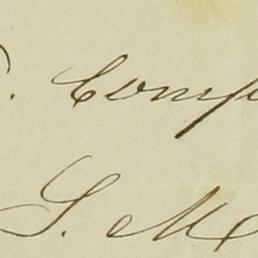 . Comp
S. M